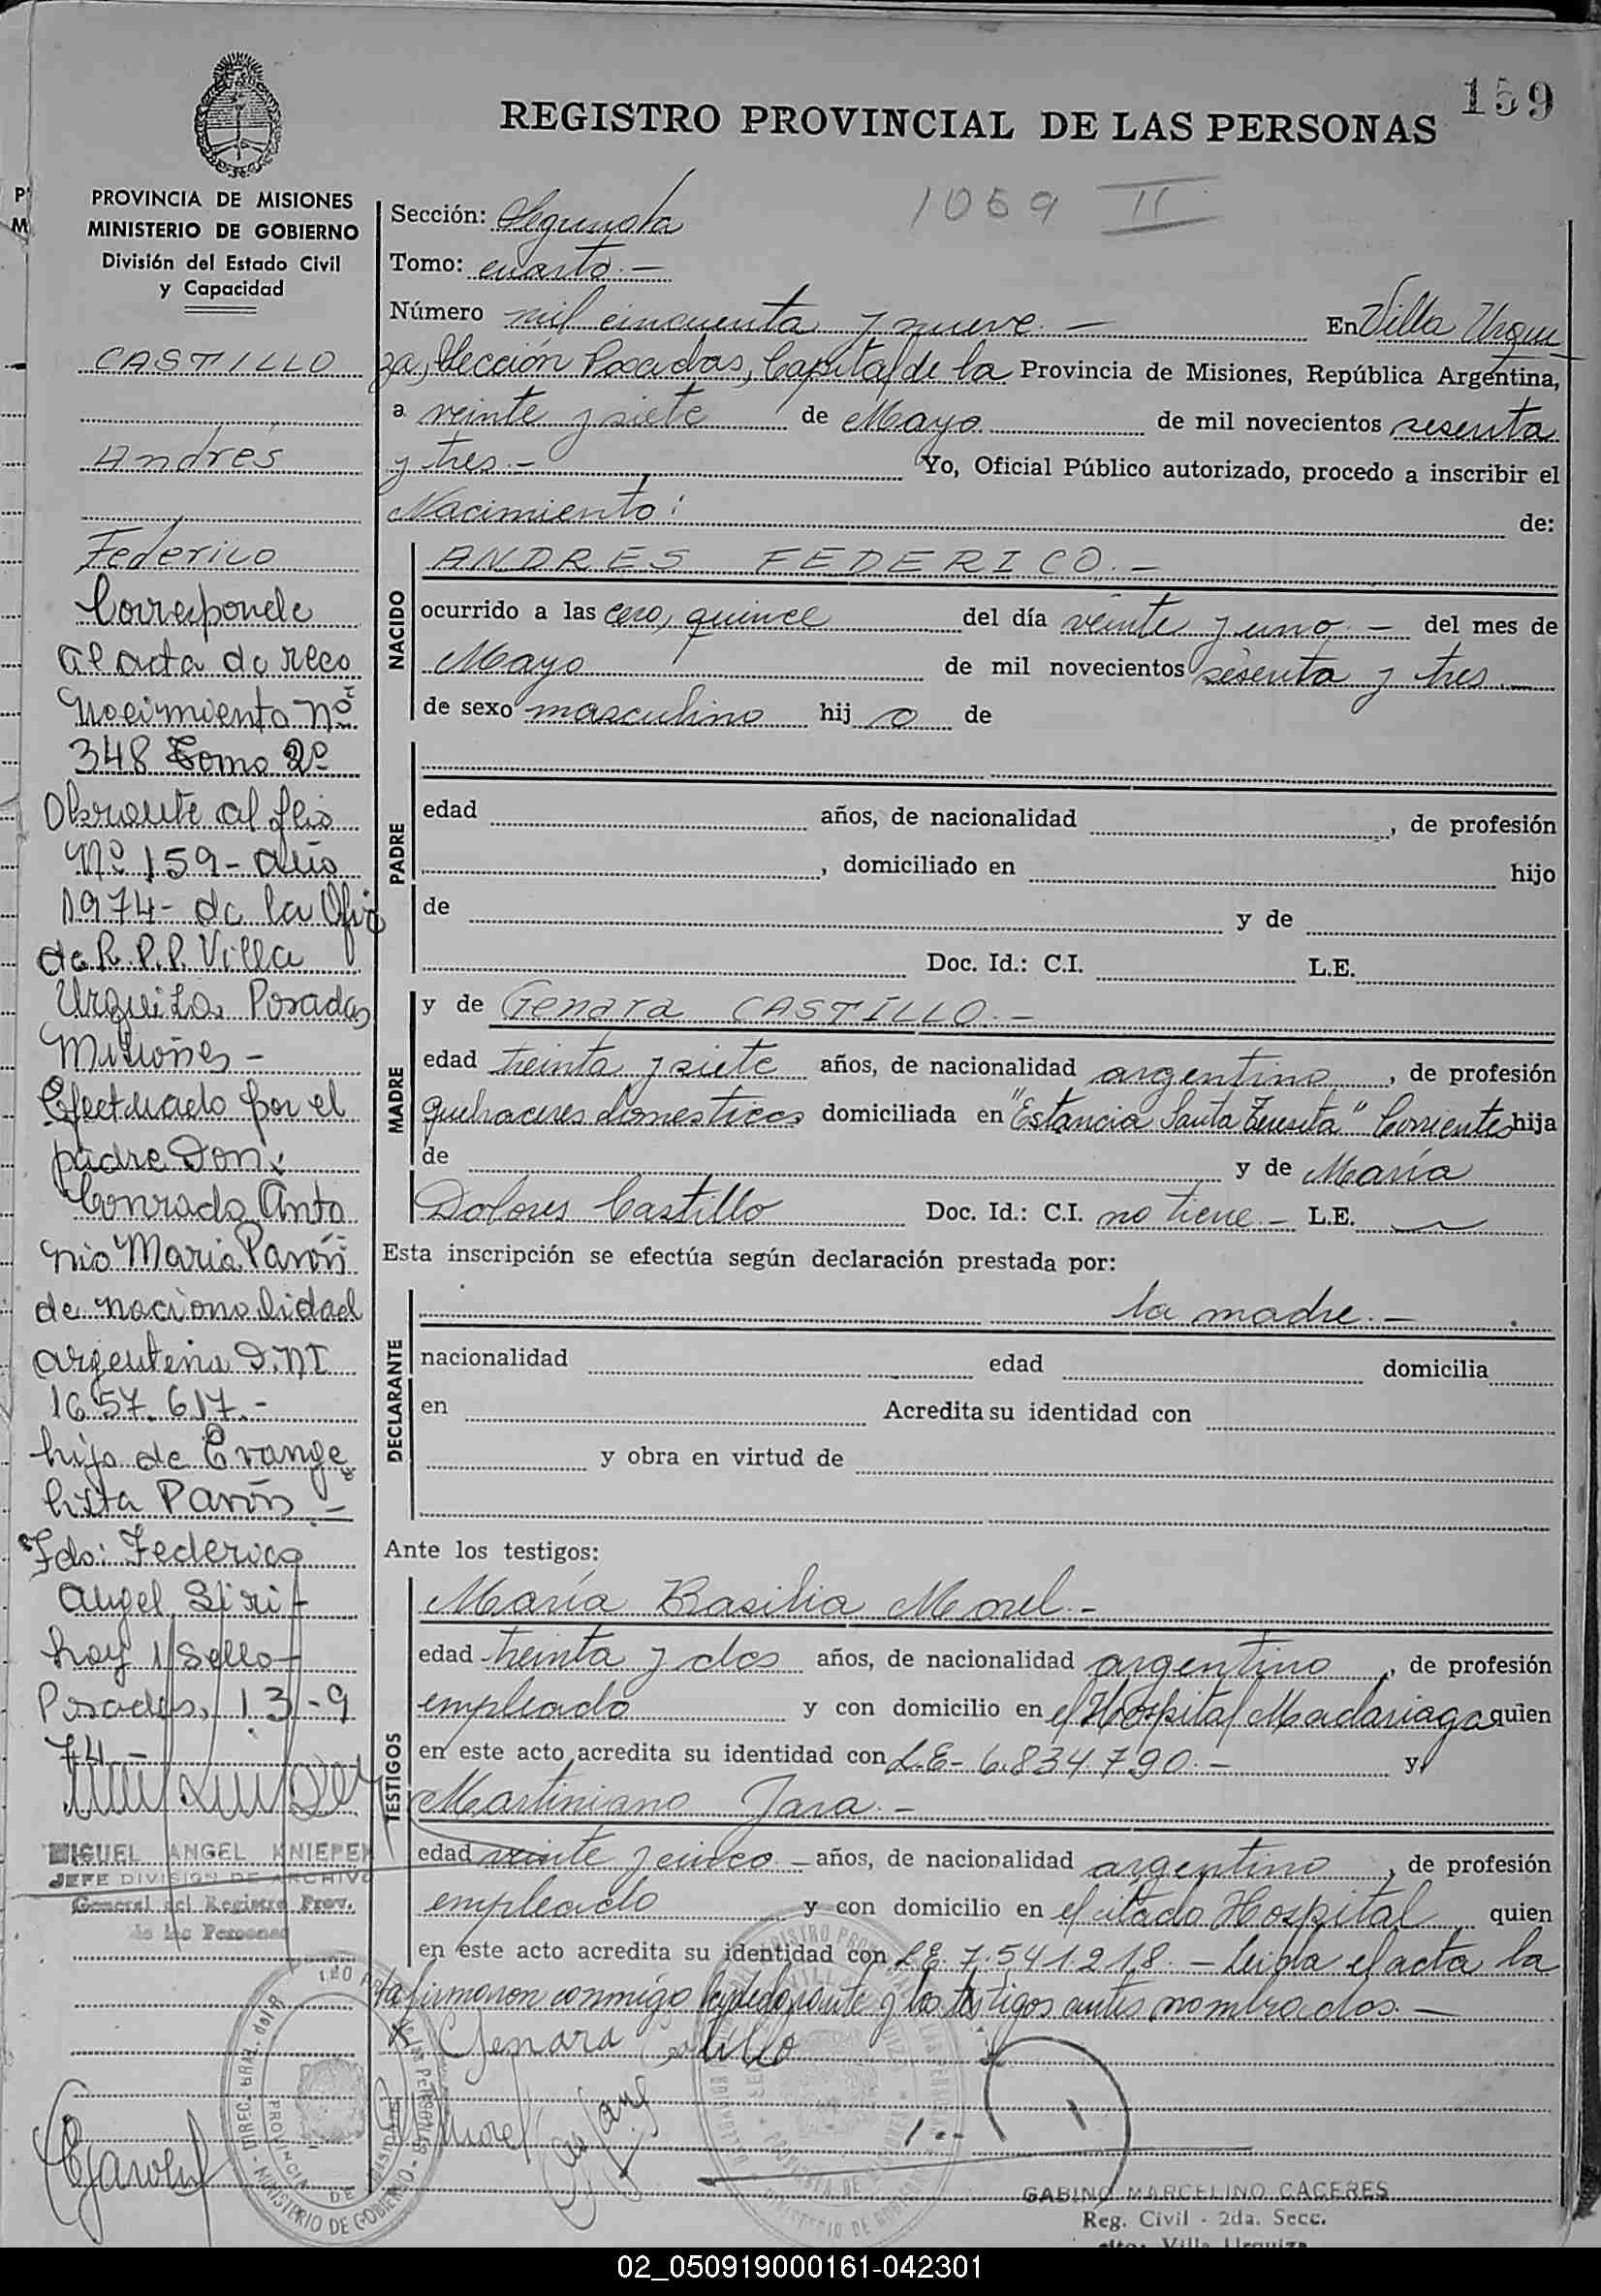 159
REGISTRO PROVINCIAL DE LAS PERSONAS
1059 II
PROVINCIA DE MISIONES
MINISTERIO DE GOBIERNO
División del Estado Civil
y Capacidad
CASTILLO
Andrés
Federico
Corresponde
al acta de reco
nocimiento nº
348 Tomo 2º
Obrante al flio
Nº 159 - año
1974 - de la Ofic
de R. P. P. Villa
Urquiza Posadas
Misiones -
Efectuado por el
padre Don:
Conrado Anto
nio Maria Pavón
de nacionalidad
argentina D.NI
1657.617.-
hijo de Evange
lista Pavón -
Fdo: Federico
Angel Siri -
hay 1 sello -
Posadas, 13-9
74 -
MIGUEL ANGEL KNIEPER
JEFE DIVISION DE ARCHIVO
General del Registro Prov.
de las Personas
Sección: Segunda
Tomo: cuarto.-
Número mil cincuenta y nueve.- En Villa Urqui
za, Sección Posadas, Capital de la Provincia de Misiones, República Argentina,
a veinte y siete de Mayo de mil novecientos sesenta
y tres.- Yo, Oficial Público autorizado, procedo a inscribir el
Nacimiento: de:
NACIDO
ANDRES FEDERICO.-
ocurrido a las cero, quince del día veinte y uno.- del mes de
Mayo de mil novecientos sesenta y tres.-
de sexo masculino hij o de
PADRE
edad años, de nacionalidad , de profesión
, domiciliado en hijo
de y de
Doc. Id.: C.I. L.E.
MADRE
y de Genara CASTILLO.-
edad treinta y siete años, de nacionalidad argentina, de profesión
quehaceres domesticos domiciliada en "Estancia Santa Teresita" Corrientes hija
de y de María
Dolores Castillo Doc. Id.: C.I. no tiene.- L.E.
Esta inscripción se efectúa según declaración prestada por:
DECLARANTE
la madre.-
nacionalidad edad domicilia
en Acredita su identidad con
y obra en virtud de
Ante los testigos:
TESTIGOS
María Basilia Morel.-
edad treinta y dos años, de nacionalidad argentino, de profesión
empleado y con domicilio en el Hospital Madariaga quien
en este acto acredita su identidad con L.E- 6.834.790.- y
Martiniano Jara.-
edad veinte y cinco.- años, de nacionalidad argentino, de profesión
empleado y con domicilio en el citado Hospital quien
en este acto acredita su identidad con L.E. 7.541.218.- Leida el acta la
firmaron conmigo y los testigos antes nombrados.-
x Genara Castillo
Morel
GABINO MARCELINO CACERES
Reg. Civil - 2da. Secc.
Villa Urquiza
02_050919000161-042301